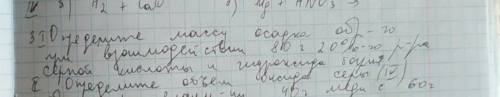 IV 8) H2 + CaO б) Mg + HNO3 →
3 I Определите массу осадка об-го
при взаимодействии 80 г 20%-го р-ра
серной кислоты и гидроксида бария
II Определите объем оксида серы (IV)
40г меди с 60г